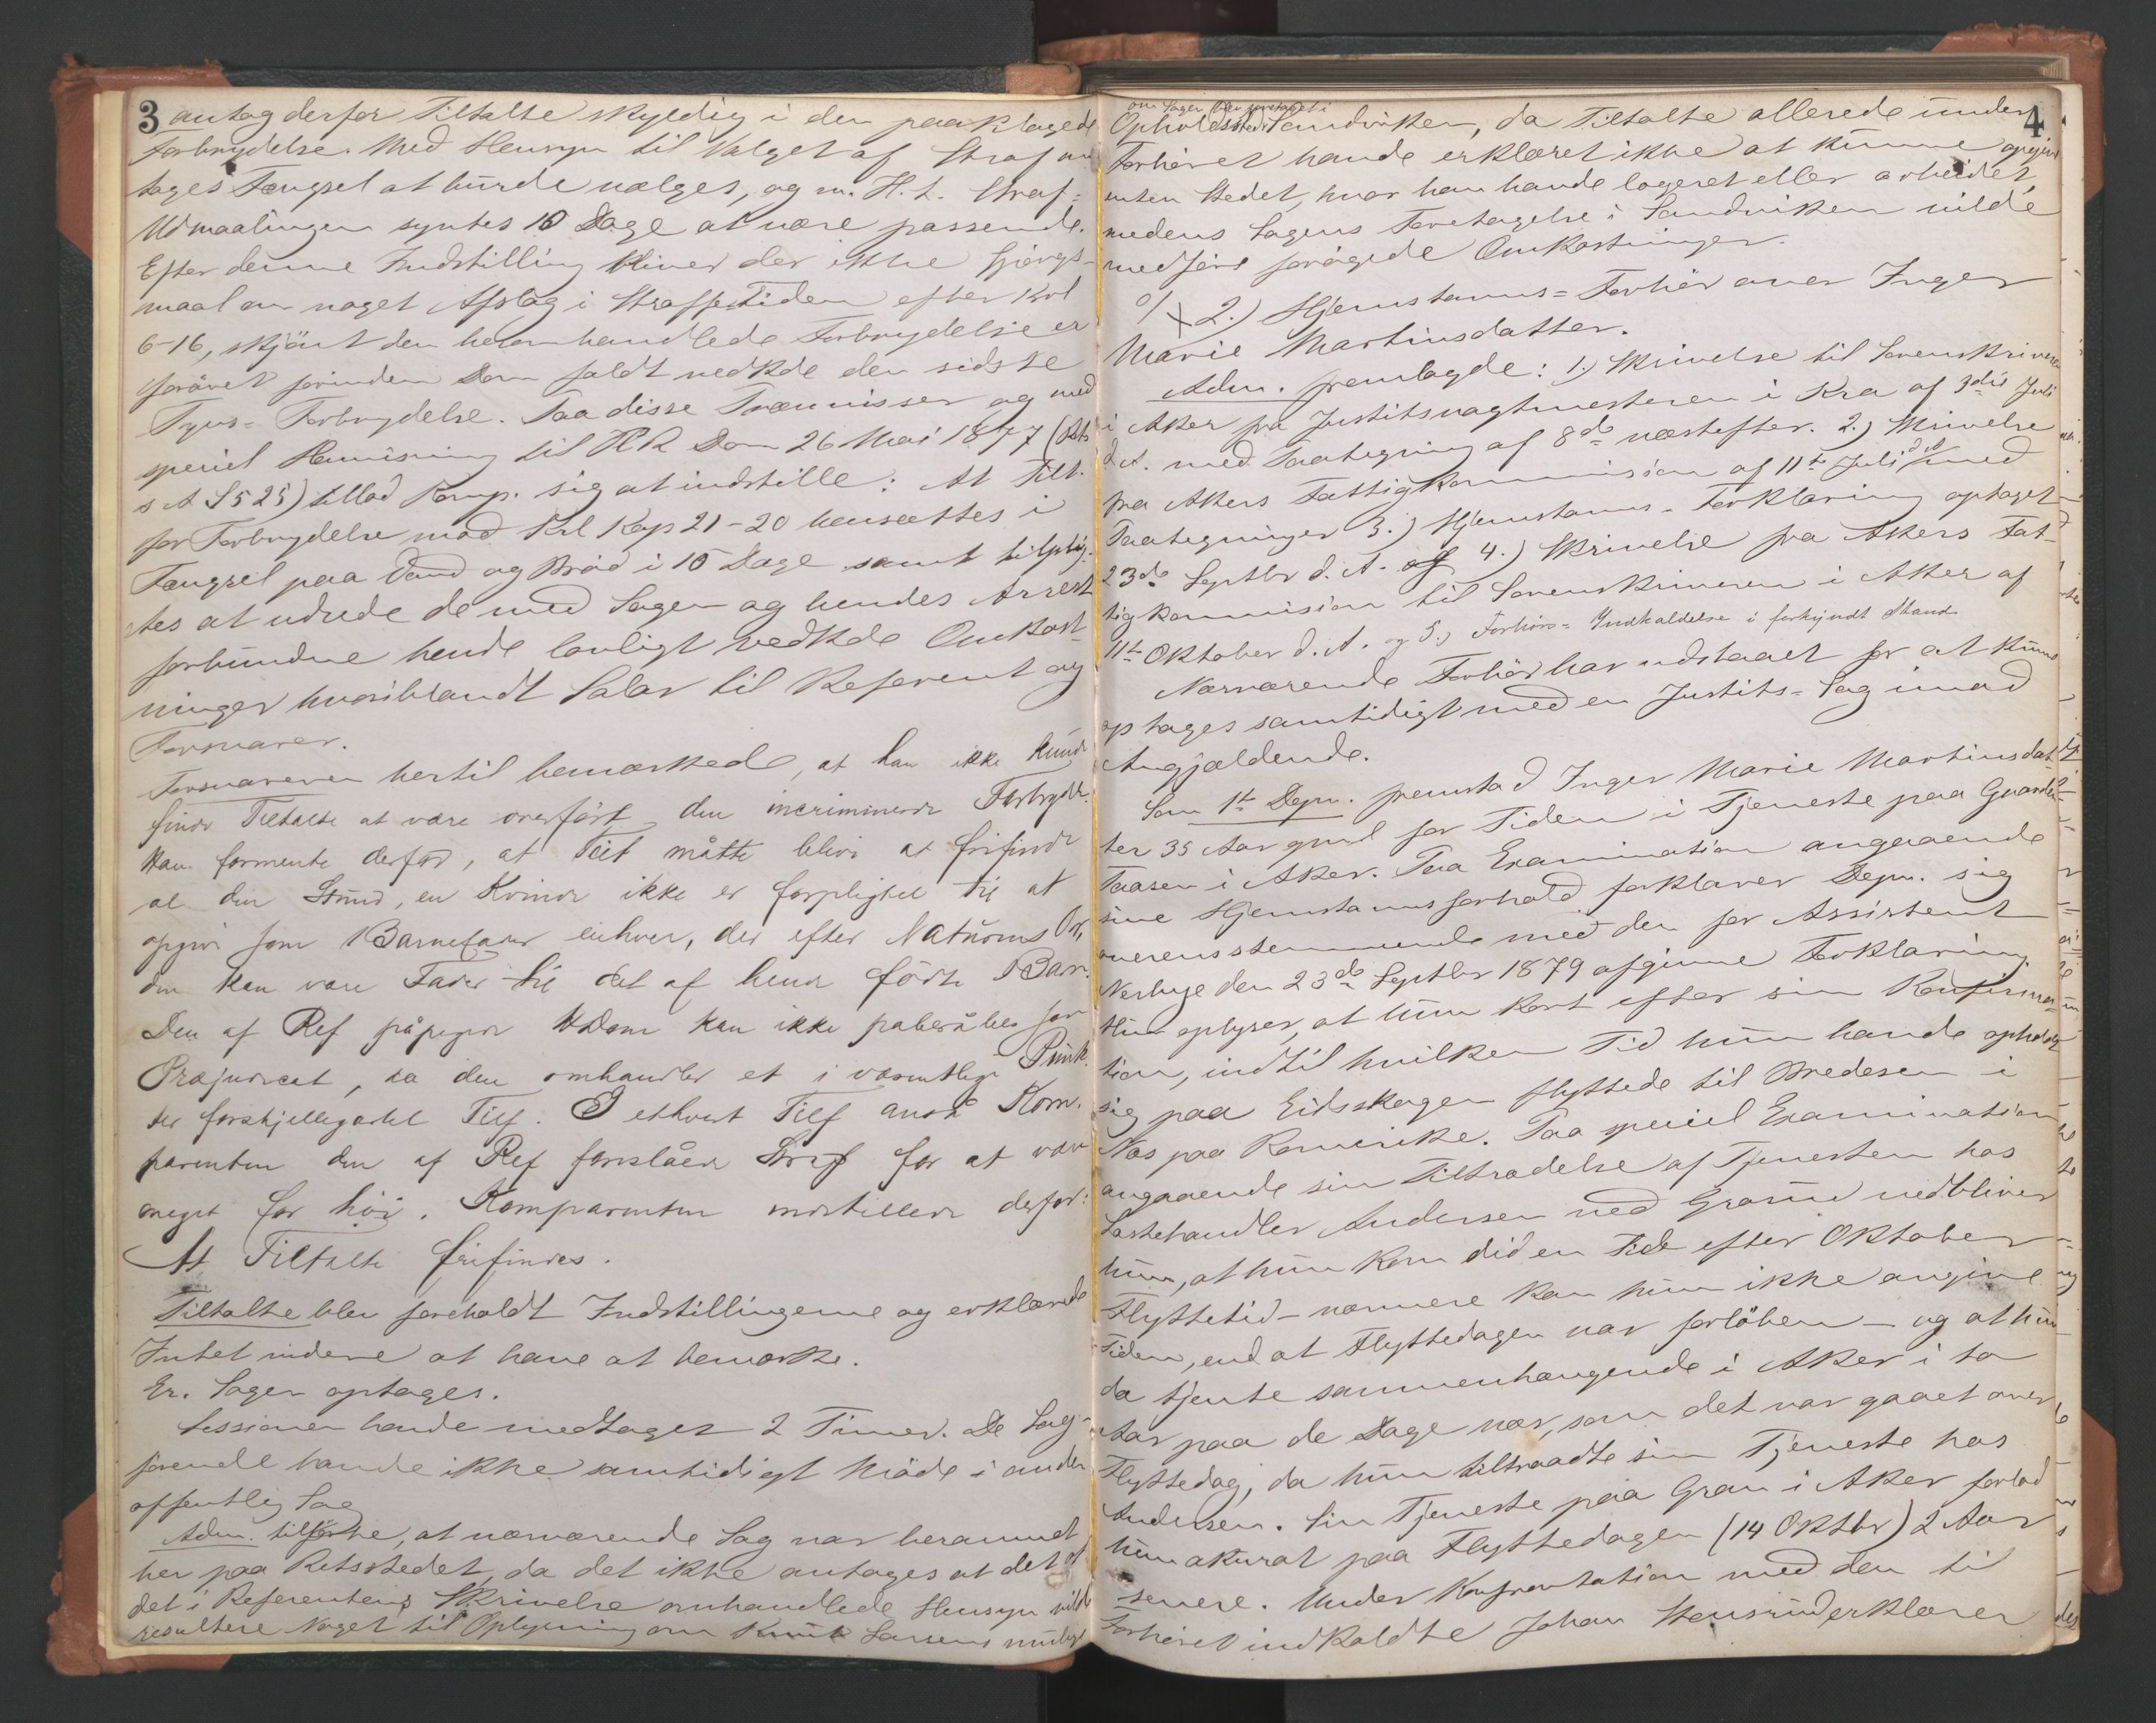 3
antog derfor Tiltalte skyldig i den paaklagede
Forbrydelse. Med Hensyn til Valget af Straf an
toges Fængsel at burde vælges, og m. H. t. Straf-
Udmaalingen syntes 10 Dage at være passende.
Efter denne Indstilling bliver der ikke Spörgs-
maal om noget Afslag i Straffetiden efter Krl
6-16, skjönt den heromhandlede Forbrydelse er
forövet forinden Dom faldt vedkde den sidste
Tyvs-Forbrydelse. Paa disse Præmisser og med
speciel Henvisning til HR Dom 26 Mai 1877 (Rts
s A S 525) tillod Komp. sig at indstille: At Tilt.
for Forbrydelse mod Krl Kap 21-20 hensættes i
Fængsel paa Vand og Bröd i 10 Dage samt tilplig-
tes at udrede de med Sagen og hendes Arrest
forbundne hende lovligt vedkde Omkost-
ninger hvoriblandt Salær til Referent og
Forsvarer.
Forsvareren hertil bemærkede, at han ikke kunde
finde Tiltalte at være overfört den incriminerede Forbrydelse.
Han formente derfor, at Tilt måtte blive at frifinde
al den Stund, en Kvinde ikke er forpligtet til at
opgive som Barnefader enhver, der efter Naturens Or-
den kan være Fader til det af hende födte Barn.
Den af Ref påpegede HrDom kan ikke paberåbes som
Præjudicat, da den omhandler et i væsentlige Punk-
ter forskjelligartet Tilf. I ethvert Tilf anså Kom-
parenten den af Ref foreslåede Straf for at være
meget for höi. Komparenten indstillede derfor:
At Tiltalte frifindes.
Tiltalte blev foreholdt Indstillingerne og erklærede
Intet videre at have at bemærke.
Er. Sagen optages.
Sessionen havde medtaget 2 Timer. De Sag-
förende havde ikke samtidigt Möde i anden
offentlig Sag
Adm. tilförte, at nærværende Sag var berammet
her paa Retsstedet, da det ikke antages at det af
det i Referentens Skrivelse omhandlede Hensyn vilde
resultere Noget til Oplysning om Knut Larsens mulige
4
om Sagen blev foretaget i
Opholdssted Sandviken, da Tiltalte allerede under
Forhöret havde erklæret ikke at kunne opgive
enten Stedet, hvor han havde logeret eller arbeidet,
medens Sagens Foretagelse i Sandviken vilde
medföre forögede Omkostninger.
2.) Hjemstavns-Forhör over Inger
Marie Martinsdatter.
Adm. fremlagde: 1.) Skrivelse til Sorenskriveren
i Aker fra Justitsvagtmesteren i Kra af 3die Juli
d.A. med Paategning af 8de næstefter. 2.) Skrivelse
fra Akers Fattigkommision af 11te Juli d.A. med
Paategninger 3.) Hjemstavns-Forklaring optaget
23de Septbr d. A. 4.) Skrivelse fra Akers Fat-
tigkommision til Sorenskriveren i Aker af
11te Oktober d. A. og 5.) Forhörs-Indkaldelse i forkyndt Stand
Nærværende Forhör har udstaaet for at kunne
optages samtidigt med en Justits-Sag imod
Angjældende.
Som 1te Depn. fremstod Inger Marie Martinsdat-
ter 35 Aar gml for Tiden i Tjeneste paa Gaarden
Taasen i Aker. Paa Examination angaaende
sine Hjemstavnsforhold forklarer Depn. sig
overensstemmende med den for Assistent
den 23de Septbr 1879 afgivne Forklaring
Hun oplyser, at hun kort efter sin Konfirma-
tion, indtil hvilken Tid hun havde opholdt
sig paa Eidsskogen flyttede til Bredesen i
Næs paa Romerike. Paa speciel Examination
angaaende sin Tiltrædelse af Tjenesten hos
Lastehandler Andersen ved Grønd vedbliver
hun, at hun kom did en Tid efter Oktober
Flyttetid - nærmere kan hun ikke angive
Tiden, end at Flyttedagen var forlöben - og at hun
da tjente sammenhængende i Aker i to
Aar paa de Dage nær, som det var gaaet over
Flyttedag, da hun tiltraadte sin Tjeneste hos
Andersen. Sin Tjeneste paa Grav i Aker forlod
hun akurat paa Flyttedagen (14 Oktbr) 2 Aar
senere. Under Konfrontation med den til
Forhöret indkaldte Johan Stensrud erklærer